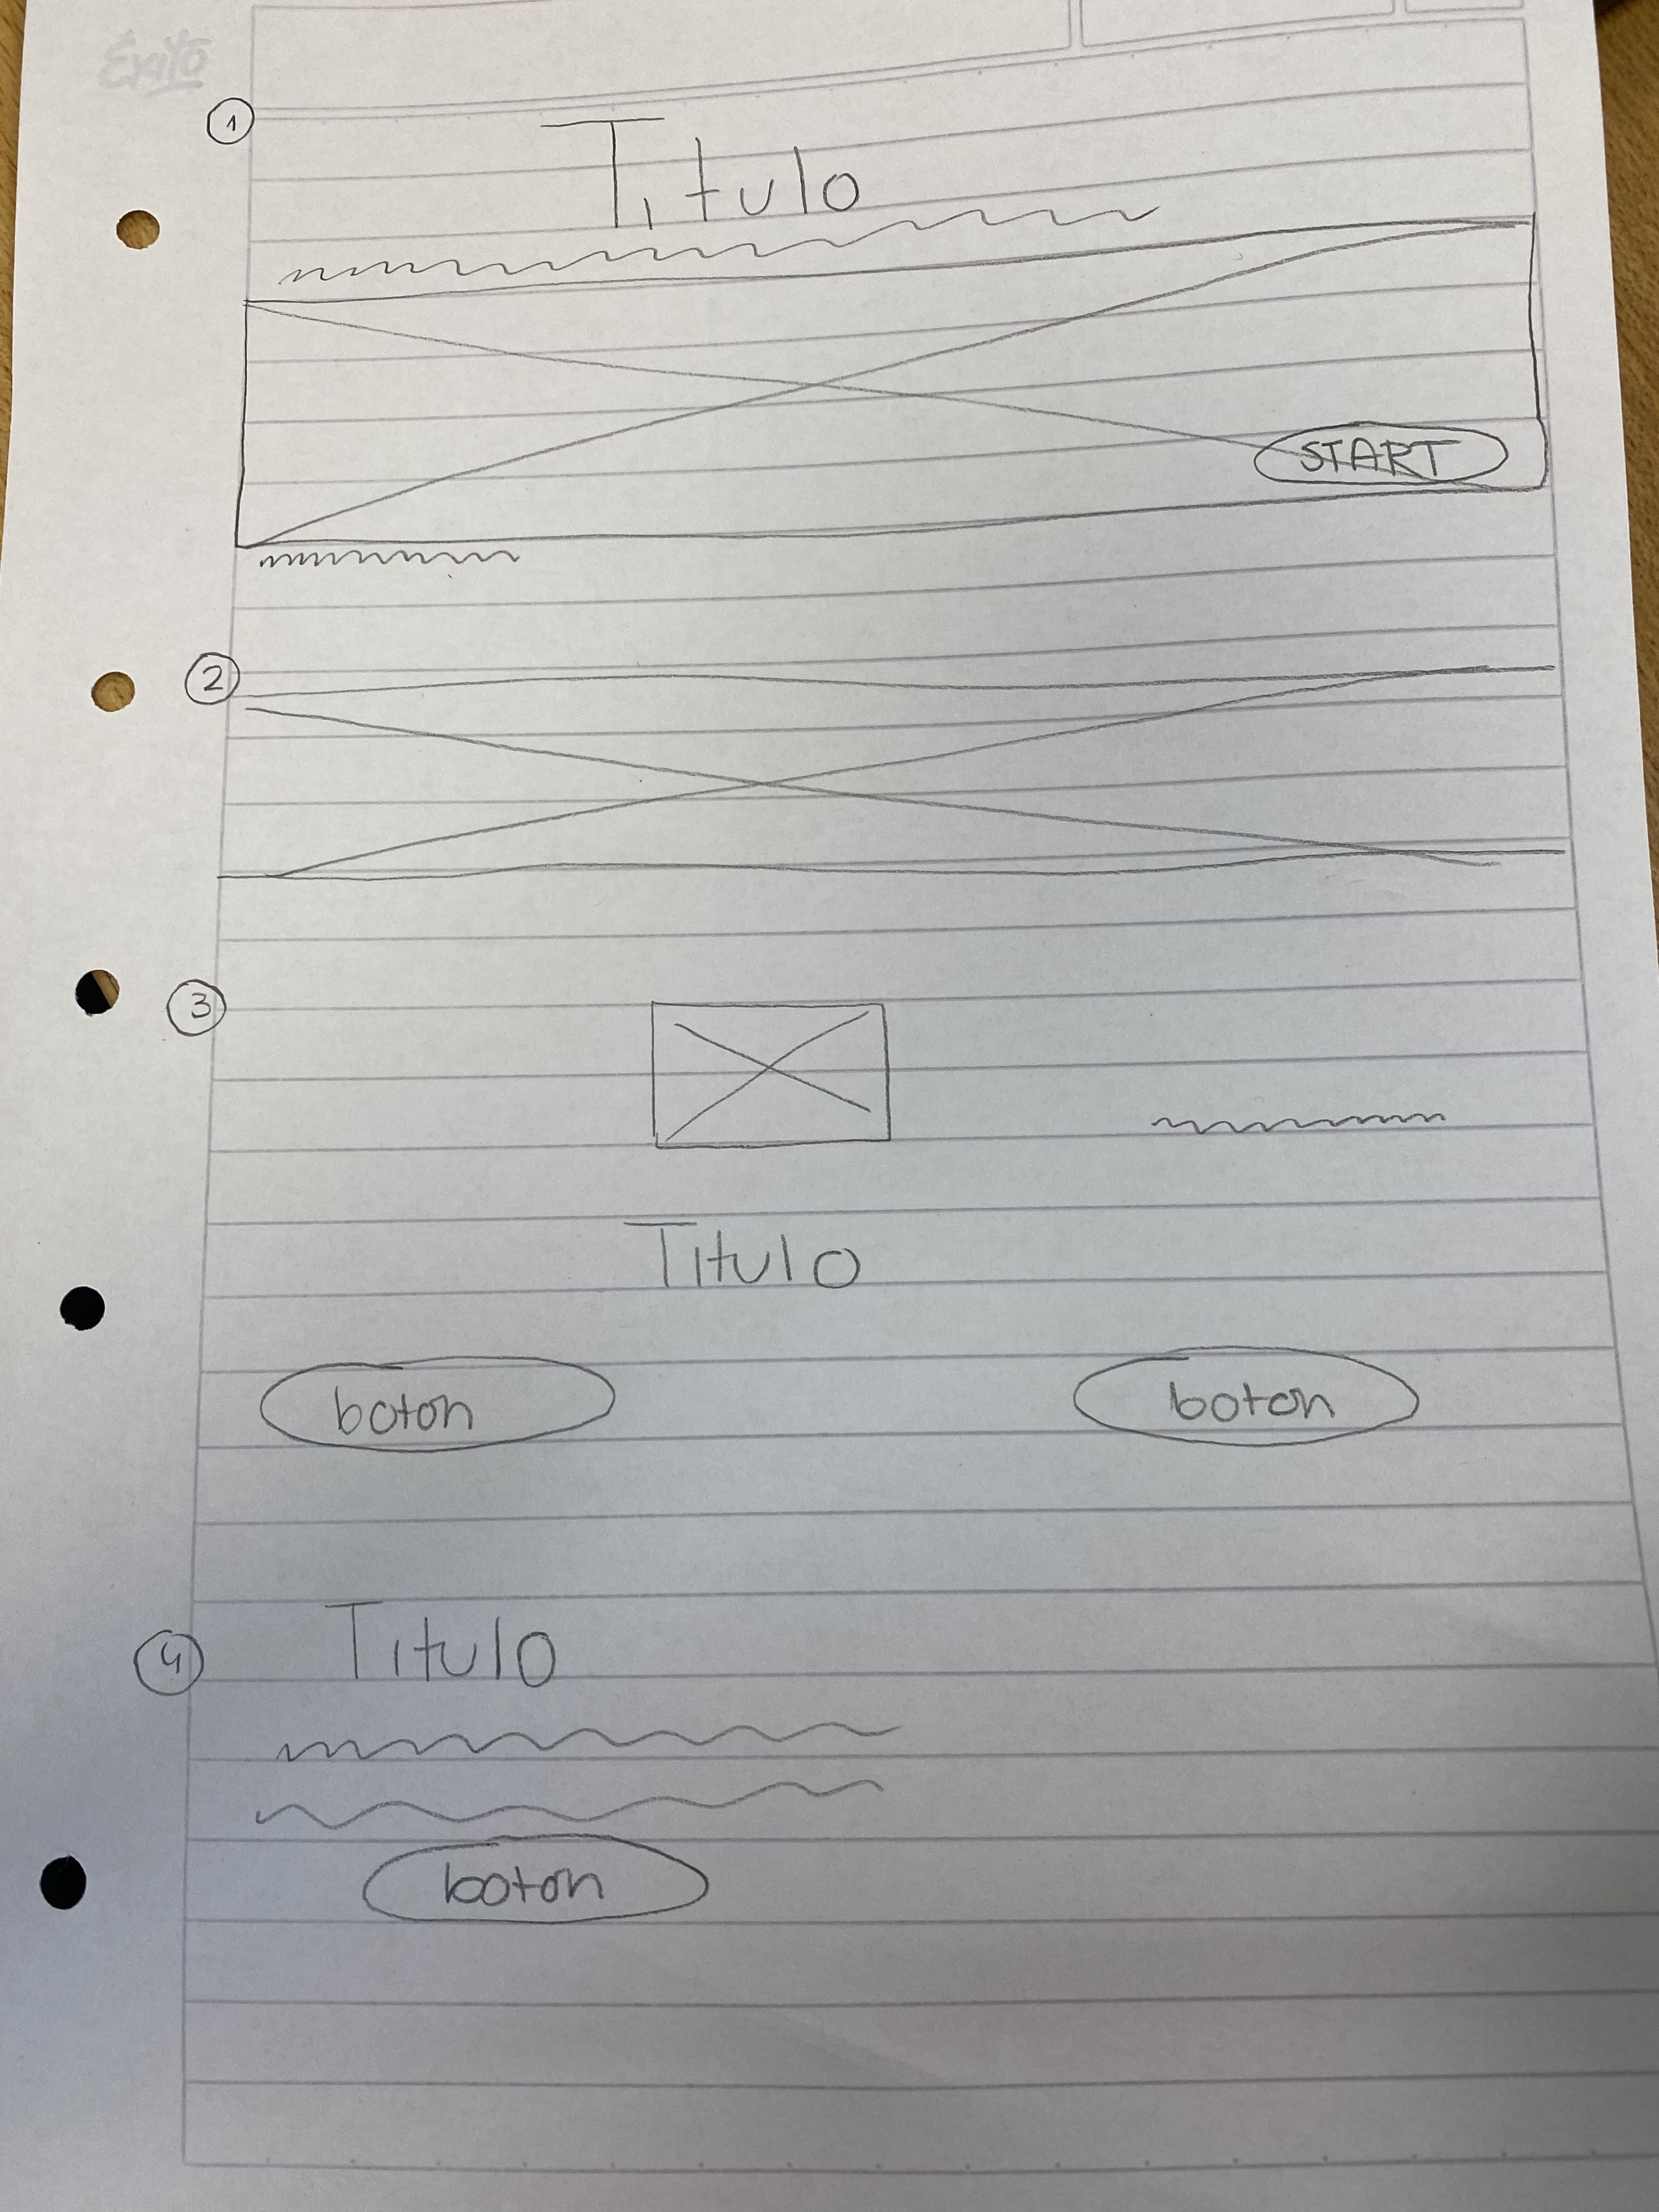 Éxito
1
Titulo
START
2
3
Titulo
boton boton
4
Titulo
boton